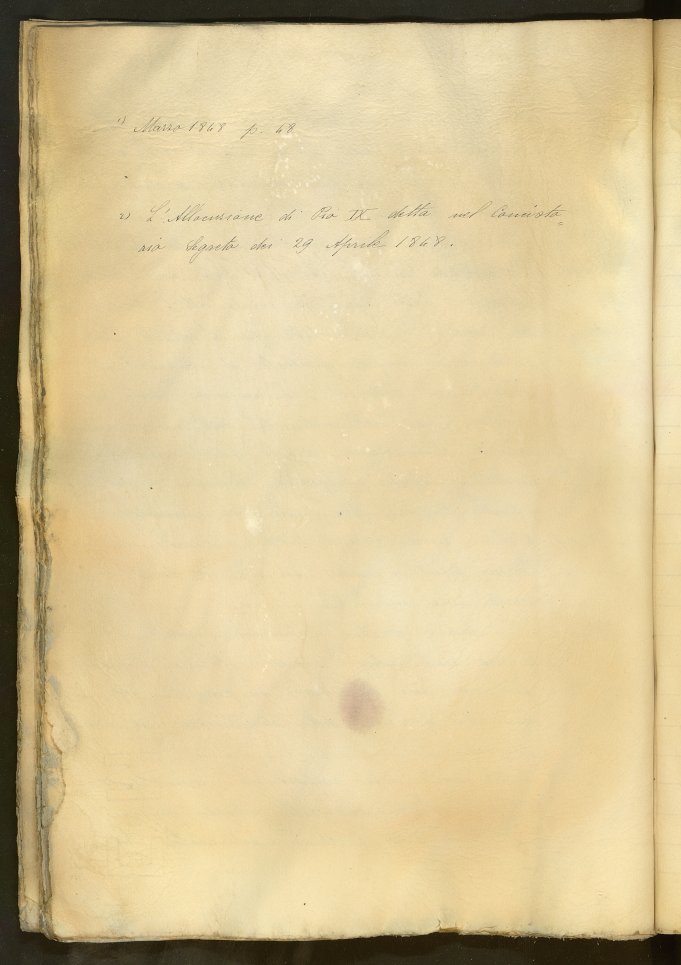 1) Marzo 1848 p. 48
2) L'Allocuzione di Pio IX detta nel Concisto=
rio Segreto dei 29 Aprile 1848.